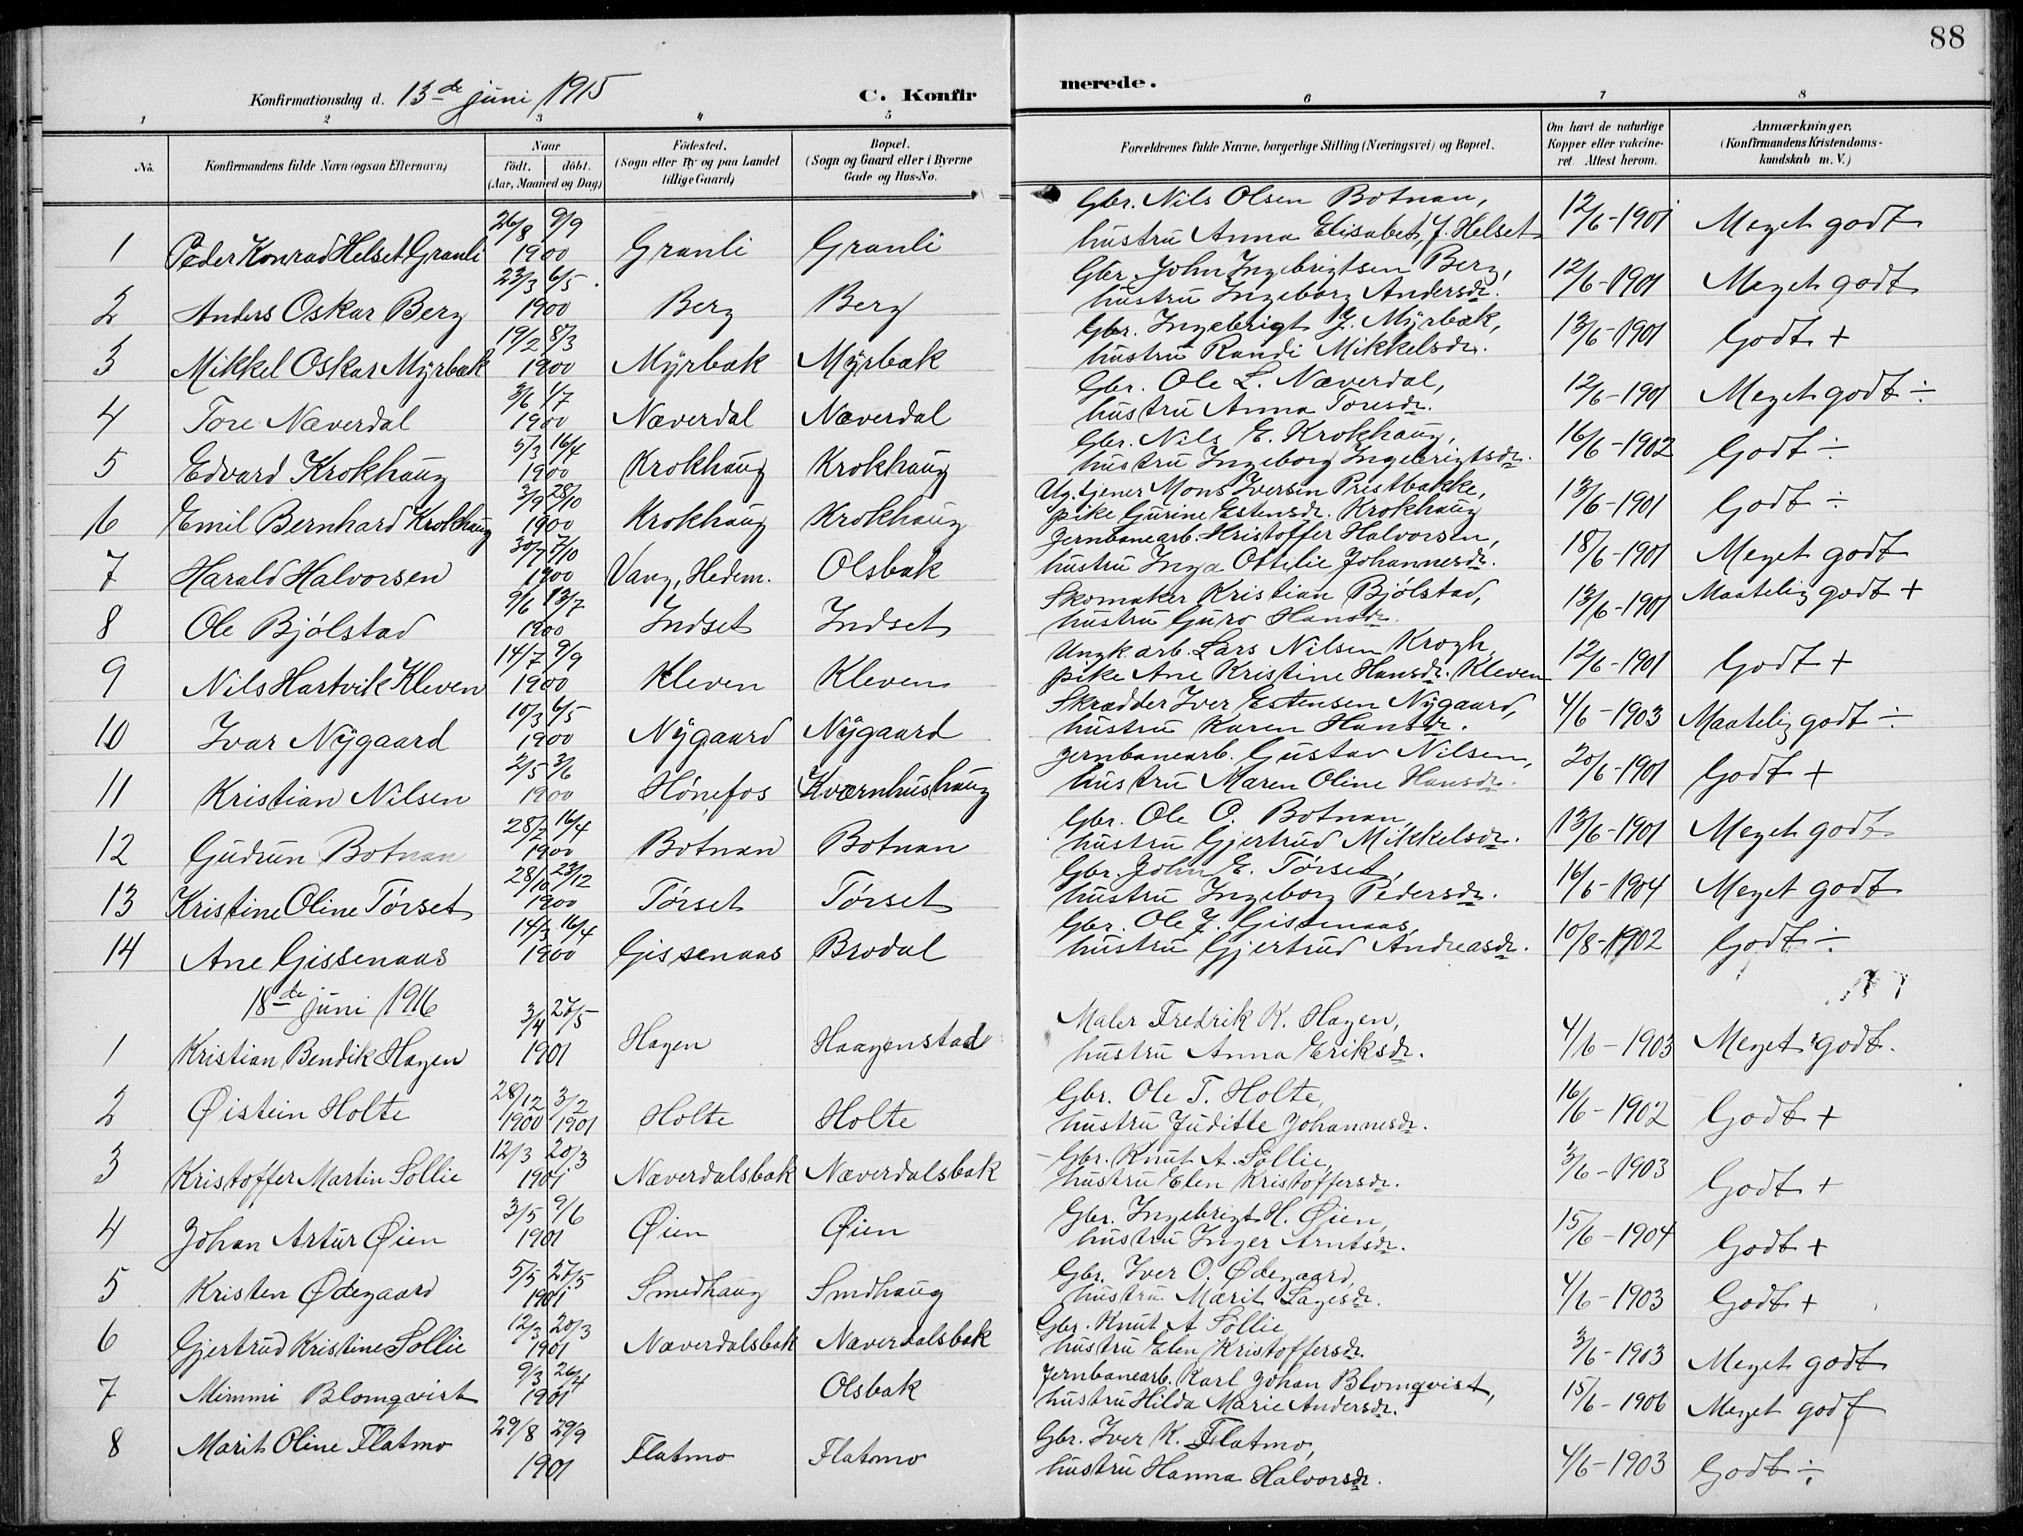 88
Konfirmationsdag d. 13de juni 1915
C. Konfir
merede.
1 2 3 4 5 6 7 8
No. Konfirmandens fulde Navn (ogsaa Efternavn) Naar født. døbt. (Aar, Maaned og Dag) Fødested. (Sogn eller By og paa Landet tillige Gaard) Bopæl. (Sogn og Gaard eller i Byerne Gade og Hus-No. Forældrenes fulde Navne, borgerlige Stilling (Næringsvei) og Bopæl. Om havt de naturlige Kopper eller vakcineret. Attest herom. Anmærkninger. (Konfirmandens Kristendomskundskab m. V.)
1 Peder Konrad Helset Granli 26/8 9/9 1900 Granli Granli Gbr. Nils Olsen Botnan, hustru Anna Elisabet J. Helset 12/6-1901 Meget godt
2 Anders Oskar Berg 23/3 6/5 1900 Berg Berg Gbr. John Ingebrigtsen Berg, hustru Ingeborg Andersdr. 12/6-1901 Meget godt
3 Mikkel Oskar Myrbak 19/2 8/3 1900 Myrbak Myrbak Gbr. Ingebrigt J. Myrbak, hustru Randi Mikkelsdr. 13/6-1901 Godt +
4 Tore Næverdal 3/6 1/7 1900 Næverdal Næverdal Gbr. Ole L. Næverdal, hustru Anna Toresdr. 12/6-1901 Meget godt ÷
5 Edvard Krokhaug 5/3 16/4 1900 Krokhaug Krokhaug Gbr. Nils E. Krokhaug, hustru Ingeborg Ingebrigtsdr. 16/6-1902 Godt ÷
6 Emil Bernhard Krokhaug 3/9 28/10 1900 Krokhaug Krokhaug Ug. tjener Mons Iversen Prestbakke, pike Gurine Estensdr. Krokhaug 13/6-1901 Godt ÷
7 Harald Halvorsen 30/7 7/10 1900 Vang, Hedem. Olsbak Jernbanearb. Kristoffer Halvorsen, hustru Inga Ottilie Johannesdr. 18/6-1901 Meget godt
8 Ole Bjølstad 9/6 13/7 1900 Indset Indset Skomaker Kristian Bjølstad, hustru Guro Hansdr. 13/6-1901 Maatelig godt +
9 Nils Hartvik Kleven 14/7 9/9 1900 Kleven Kleven Ungk. arb. Lars Nilsen Krogh, pike Ane Kristine Hansdr. Kleven 12/6-1901 Godt +
10 Ivar Nygaard 10/3 6/5 1900 Nygaard Nygaard Skrædder Iver Estensen Nygaard, hustru Karen Hansdr. 4/6-1903 Maatelig godt ÷
11 Kristian Nilsen 2/5 3/6 1900 Hønefos Kværnhushaug Jernbanearb. Gustav Nilsen, hustru Maren Oline Hansdr. 20/6-1901 Godt +
12 Gudrun Botnan 28/2 16/4 1900 Botnan Botnan Gbr. Ole O. Botnan, hustru Gjertrud Mikkelsdr. 13/6-1901 Meget godt
13 Kristine Oline Tørset 28/10 23/12 1900 Tørset Tørset Gbr. John E. Tørset, hustru Ingeborg Pedersdr. 16/6-1904 Meget godt
14 Ane Gissenaas 14/3 16/4 1900 Gissenaas Brodal Gbr. Ole J. Gissenaas, hustru Gjertrud Andreasdr. 10/8-1902 Godt ÷
18de juni 1916
1 Kristian Bendik Hagen 3/4 27/5 1901 Hagen Haagenstad Maler Fredrik K. Hagen, hustru Anna Eriksdr. 4/6-1903 Meget godt.
2 Øistein Holte 28/12 1900 3/2 1901 Holte Holte Gbr. Ole T. Holte, hustru Juditte Johannesdr. 16/6-1902 Godt +
3 Kristoffer Martin Sollie 12/3 20/3 1901 Næverdalsbak Næverdalsbak Gbr. Knut A. Sollie, hustru Elen Kristoffersdr. 3/6-1903 Godt +
4 Johan Artur Øien 3/5 9/6 1901 Øien Øien Gbr. Ingebrigt H. Øien, hustru Inger Arntsdr. 15/6-1904 Godt +
5 Kristen Ødegaard 5/5 27/5 1901 Smedhaug Smdhaug Gbr. Iver O. Ødegaard, hustru Marit Lagesdr. 4/6-1903 Godt +
6 Gjertrud Kristine Sollie 12/3 20/3 1901 Næverdalsbak Næverdalsbak Gbr. Knut A Sollie hustru Elen Kristoffersdr. 3/6-1903 Meget godt
7 Mimmi Blomqvist 9/3 26/4 1901 Olsbak Jernbanearb. Karl Johan Blomqvist, hustru Hilda Marie Andersdr. 15/6-1906 Meget godt
8 Marit Oline Flatmo 29/8 29/9 1901 Flatmo Flatmo Gbr. Iver K. Flatmo, hustru Hanna Halvorsdr. 4/6-1903 Godt ÷